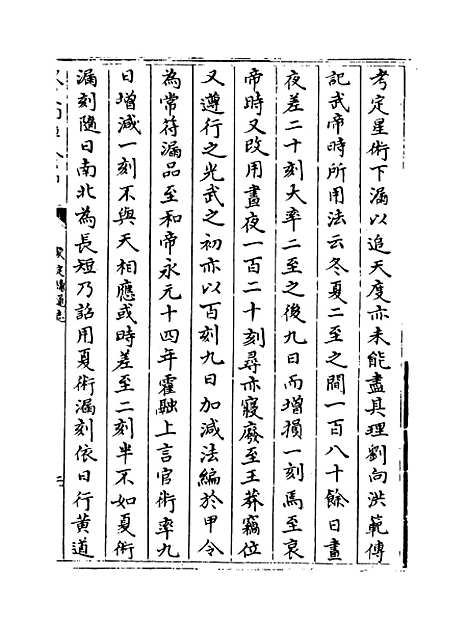 考定星術下漏以追天度亦未能盡具理劉向洪範傳
記武帝時所用法云冬夏二至之間一百八十餘日晝
夜差二十刻大率二至之後九日而增損一刻焉至哀
帝時又改用晝夜一百二十刻尋亦寢廢至王莽竊位
又遵行之光武之初亦以百刻九日加減法編於甲令
為常符漏品至和帝永元十四年霍融上言官術率九
日增減一刻不與天相應或時差至二刻半不如夏術
漏刻隨日南北為長短乃詔用夏術漏刻依日行黃道
欽定續通志